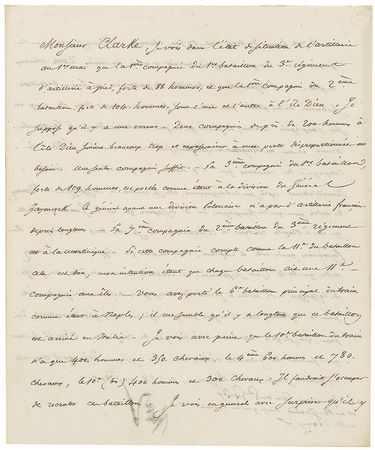 Monsieur Clarke, je vois dans l'état de situation de l'artillerie
au 1er mai que la 1ère compagnie du 1er bataillon du 3e régiment
d'artillerie à pied, forte de 98 hommes, et que la 1ère compagnie du 2ème
bataillon, forte de 104 hommes, sont l'une et l'autre à l'île Dieu. Je
suppose qu'il y a une erreur. Deux compagnies de près de 200 hommes à
l'île Dieu seraient beaucoup trop et exposeraient à une perte disproportionnée au
besoin. Une seule compagnie suffit. – La 9ème compagnie du 1er bataillon
forte de 109 hommes, est portée comme étant à la division du Général
Zayonzek. Le général ayant une division Polonaise n'a pas d'artillerie française
depuis longtems. – La 7ème compagnie du 2ème bataillon du 3ème régiment
est à la martinique. Si cette compagnie compte comme la 11e du bataillon
cela est bien, mon intention étant que chaque bataillon ait une 11e
compagnie aux îles. – Vous avez porté le 6e bataillon principal du train
comme étant à Naples, il me semble qu'il y a longtems que ce bataillon
est arrivé en Italie. Je vois avec peine que le 10e bataillon du train
n'a que 400 hommes et 350 chevaux, le 4ème 600 hommes et 780
chevaux, le 10e (bis) 400 hommes et 300 chevaux. Il faudrait s'occuper
de recruter ces bataillons. Je vois en général avec surprise qu'il y